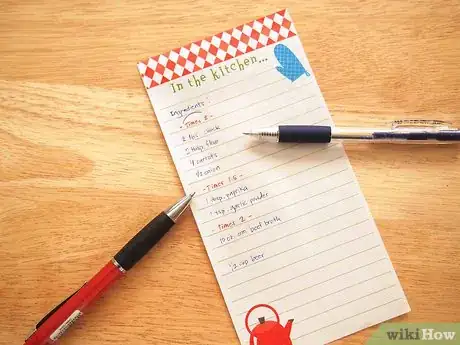 In the kitchen...
Ingredients:
- Times 3 -
2 lbs. chuck
flour
4 carrots
1/2 onion
- Times 1.5 -
1 tbsp. paprika
1 tsp. garlic powder
- Times 2 -
10 oz. can beef broth
1/2 cup beer
wikiHow